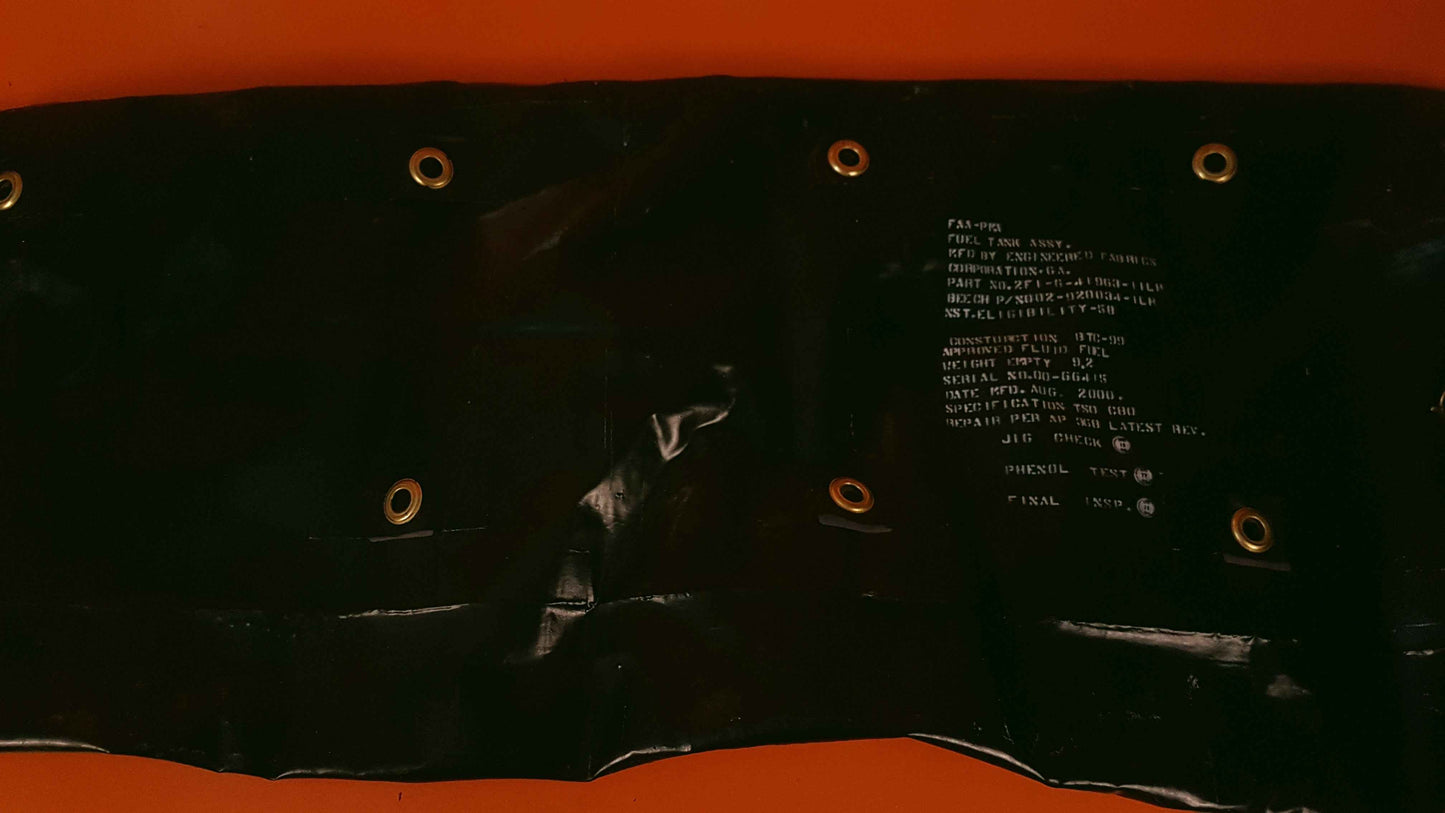 FAA-PMA
FUEL TANK ASSY.
MFD BY ENGINEERED FABRICS
CORPORATION-GA.
PART NO.2F1-6-41963-11LH
BEECH P/N002-920034-1LH
NST.ELIGIBILITY-58
CONSTUCTION BTC-99
APPROVED FLUID FUEL
WEIGHT EMPTY 9.2
SERIAL NO.00-
DATE MFD.AUG. 2000.
SPECIFICATION TSO C80
REPAIR PER AP 368 LATEST REV.
JIG CHECK
PHENOL TEST
FINAL INSP.